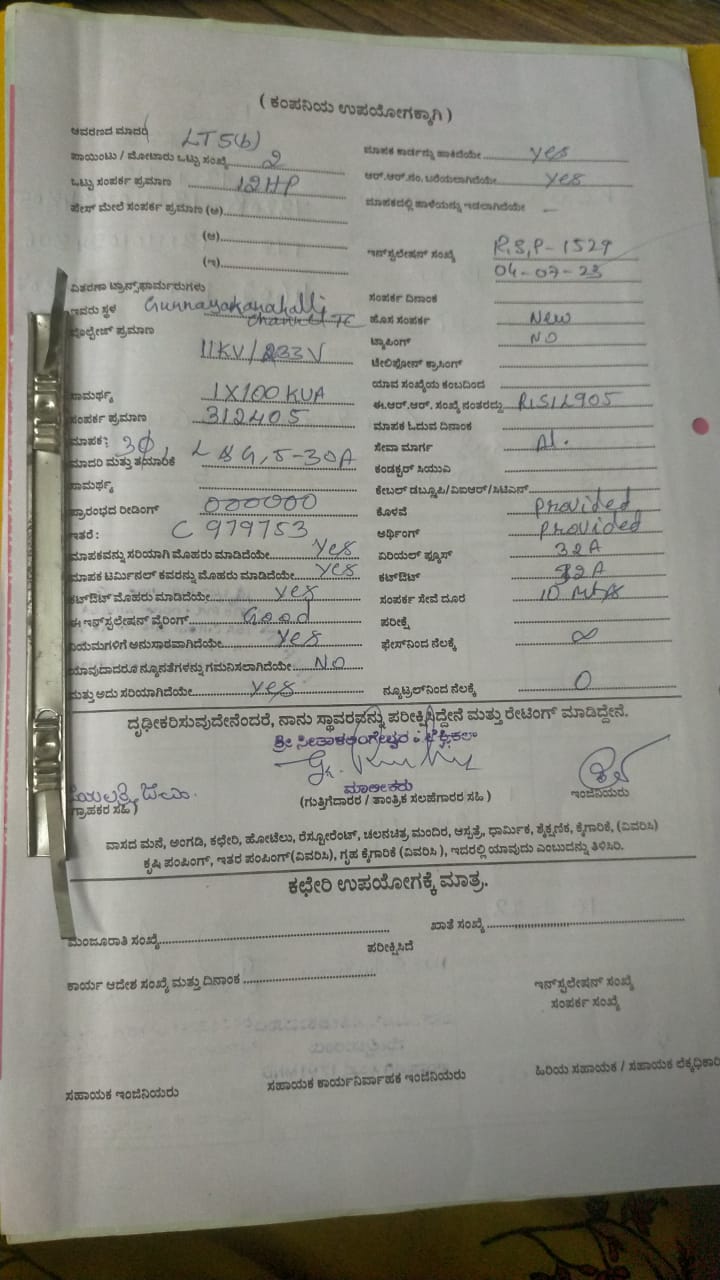 ( ಕಂಪನಿಯ ಉಪಯೋಗಕ್ಕಾಗಿ )
ಆವರಣದ ಮಾದರಿ LT5(b)
ಪಾಯಿಂಟು / ಮೋಟಾರು ಒಟ್ಟು ಸಂಖ್ಯೆ 2
ಮಾಪಕ ಕಾರ್ಡನ್ನು ಹಾಕಿದೆಯೇ yes
ಒಟ್ಟು ಸಂಪರ್ಕ ಪ್ರಮಾಣ 12HP
ಆರ್.ಆರ್.ನಂ. ಬರೆಯಲಾಗಿದೆಯೇ yes
ಫೇಸ್ ಮೇಲೆ ಸಂಪರ್ಕ ಪ್ರಮಾಣ (ಅ)
ಮಾಪಕದಲ್ಲಿ ಹಾಳೆಯನ್ನು ಇಡಲಾಗಿದೆಯೇ –
(ಆ)
(ಇ)
ಇನ್‌ಸ್ಟಲೇಷನ್ ಸಂಖ್ಯೆ R.S.P-1529
04-07-23
ವಿತರಣಾ ಟ್ರಾನ್ಸ್‌ಫಾರ್ಮರುಗಳು
ಇವರು ಸ್ಥಳ Gunnayakanahalli
ಸಂಪರ್ಕ ದಿನಾಂಕ
ವೊಲ್ಟೇಜ್ ಪ್ರಮಾಣ
ಹೊಸ ಸಂಪರ್ಕ New
11KV/233V
ಟ್ಯಾಪಿಂಗ್ NO
ಟೆಲಿಫೋನ್ ಕ್ರಾಸಿಂಗ್
ಯಾವ ಸಂಖ್ಯೆಯ ಕಂಬದಿಂದ
ಸಾಮರ್ಥ್ಯ 1X100KVA
ಈ.ಆರ್.ಆರ್. ಸಂಖ್ಯೆ ನಂತರದ್ದು
ಸಂಪರ್ಕ ಪ್ರಮಾಣ 312405
ಮಾಪಕ ಓದುವ ದಿನಾಂಕ
ಮಾಪಕ: 3Φ,
ಸೇವಾ ಮಾರ್ಗ Al.
ಮಾದರಿ ಮತ್ತು ತಯಾರಿಕೆ L&G, 5-30A
ಕಂಡಕ್ಟರ್ ಸಿಯುವಿ
ಸಾಮರ್ಥ್ಯ
ಕೇಬಲ್ ಡಬ್ಲ್ಯೂಪಿ/ವಿಐಆರ್/ಸಿಟಿಎಸ್
ಪ್ರಾರಂಭದ ರೀಡಿಂಗ್ 000000
ಕೊಳವೆ Provided
ಇತರೆ : C 979753
ಅರ್ಥಿಂಗ್ Provided
ಮಾಪಕವನ್ನು ಸರಿಯಾಗಿ ಮೊಹರು ಮಾಡಿದೆಯೇ Yes
ಏರಿಯಲ್ ಫ್ಯೂಸ್ 32A
ಮಾಪಕ ಟರ್ಮಿನಲ್ ಕವರನ್ನು ಮೊಹರು ಮಾಡಿದೆಯೇ Yes
ಕಟ್‌ಔಟ್ 32A
ಕಟ್‌ಔಟ್ ಮೊಹರು ಮಾಡಿದೆಯೇ yes
ಸಂಪರ್ಕ ಸೇವೆ ದೂರ 10 mtrs
ಈ ಇನ್‌ಸ್ಟಲೇಷನ್ ವೈರಿಂಗ್ Good
ಪರೀಕ್ಷೆ
ನಿಯಮಗಳಿಗೆ ಅನುಸಾರವಾಗಿದೆಯೇ Yes
ಫೇಸ್‌ನಿಂದ ನೆಲಕ್ಕೆ ∞
ಯಾವುದಾದರೂ ನ್ಯೂನತೆಗಳನ್ನು ಗಮನಿಸಲಾಗಿದೆಯೇ NO
ಮತ್ತು ಅದು ಸರಿಯಾಗಿದೆಯೇ yes
ನ್ಯೂಟ್ರಲ್‌ನಿಂದ ನೆಲಕ್ಕೆ 0
ದೃಢೀಕರಿಸುವುದೇನೆಂದರೆ, ನಾನು ಸ್ಥಾವರವನ್ನು ಪರೀಕ್ಷಿಸಿದ್ದೇನೆ ಮತ್ತು ರೇಟಿಂಗ್ ಮಾಡಿದ್ದೇನೆ.
ಶ್ರೀ
ಮಾಲೀಕರು
ಗ್ರಾಹಕರ ಸಹಿ )
(ಗುತ್ತಿಗೆದಾರರ / ತಾಂತ್ರಿಕ ಸಲಹೆಗಾರರ ಸಹಿ )
ಇಂಜಿನಿಯರು
ವಾಸದ ಮನೆ, ಅಂಗಡಿ, ಕಛೇರಿ, ಹೋಟೆಲು, ರೆಸ್ಟೋರೆಂಟ್, ಚಲನಚಿತ್ರ ಮಂದಿರ, ಆಸ್ಪತ್ರೆ, ಧಾರ್ಮಿಕ, ಶೈಕ್ಷಣಿಕ, ಕೈಗಾರಿಕೆ, (ವಿವರಿಸಿ)
ಕೃಷಿ ಪಂಪಿಂಗ್, ಇತರ ಪಂಪಿಂಗ್(ವಿವರಿಸಿ), ಗೃಹ ಕೈಗಾರಿಕೆ (ವಿವರಿಸಿ ), ಇದರಲ್ಲಿ ಯಾವುದು ಎಂಬುದನ್ನು ತಿಳಿಸಿರಿ.
ಕಛೇರಿ ಉಪಯೋಗಕ್ಕೆ ಮಾತ್ರ.
ಮಂಜೂರಾತಿ ಸಂಖ್ಯೆ
ಖಾತೆ ಸಂಖ್ಯೆ
ಪರೀಕ್ಷಿಸಿದೆ
ಕಾರ್ಯ ಆದೇಶ ಸಂಖ್ಯೆ ಮತ್ತು ದಿನಾಂಕ
ಇನ್‌ಸ್ಟಲೇಷನ್ ಸಂಖ್ಯೆ
ಸಂಪರ್ಕ ಸಂಖ್ಯೆ
ಸಹಾಯಕ ಇಂಜಿನಿಯರು
ಸಹಾಯಕ ಕಾರ್ಯನಿರ್ವಾಹಕ ಇಂಜಿನಿಯರು
ಹಿರಿಯ ಸಹಾಯಕ / ಸಹಾಯಕ ಲೆಕ್ಕಧಿಕಾರಿ